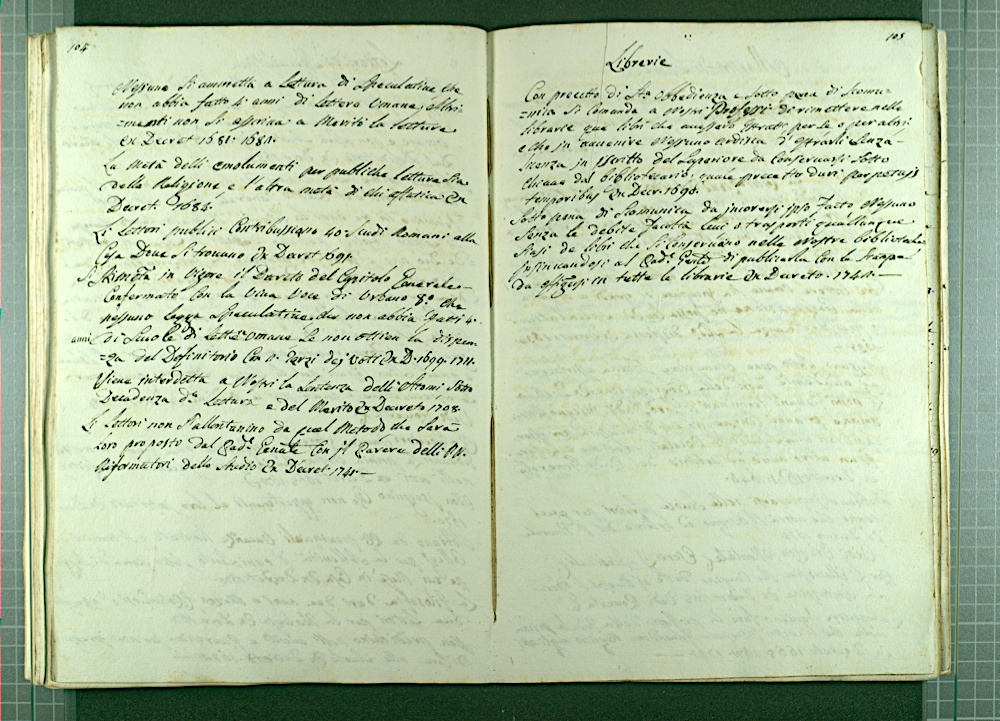 104
Nessuno si ammetta a Lettura di Speculativa che
non abbia fatto 4 anni di Lettera Umana, altri-
=menti non si ascriva a Meriti la lettura
Ex Decret 1681. 1684.
La metà delli emolumenti per publiche letture sia
della Religione e l'altra metà di chi affatica Ex
Decret. 1684.
Li Lettori publici Contribuissero 40 Scudi Romani alla
Casa Dove si trovano Ex Decret 1691.
Si Rimetta in Vigore il Decreto del Capitolo Generale
Confermato Con la Viva Voce di Urbano 8.º che
nessuno legga Speculativa che non abbia fatti 4.
anni di Scuola di Lettra Umane se non ottien la dispen-
=za del Definitorio Con 2. terzi dej Voti Ex D. 1699. 1711.
Viene interdetta a Nostri la Sentenza delli Attomi Sotto
Decadenza da Lettura e del Merito Ex Decreto 1708.
Li Lettori non s'allontanino da quel Metodo che Sarà
Loro proposto dal Pad.e Genale Con il Parere delli PP.
Riformatori dello Studio Ex Decret 1741.—
105
Librerie
Con precetto di Sta Obbedienza e Sotto pena di Scomu-
=nica si Comanda a Nostri Professi di rimettere nelle
librarie que libri che avessero estratti per se o per altri,
e che in avvenire Nessuno ardisca d'estrarli Senza
licenza in iscritto del Superiore da Conservarsi Sotto
Chiave dal bibliotecario, quale precetto duri perpetuis
temporibus Ex Decr. 1695.
Sotto pena di Scomunica da incorersi ipso facto Nessuno
Senza le debite facoltà levi, o trasporti qualunque
siasi de libri che si Conservano nelle Nostre biblioteche
insinuandosi al Pad.e Genle di publicarla Con la Stampa
da affigersi in tutte le librarie Ex Decreto. 1741.—